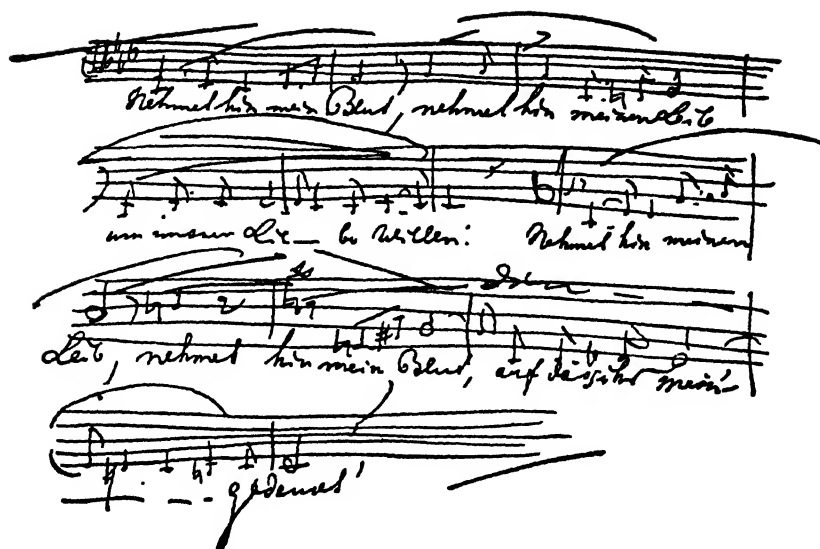 Nehmet hin mein Blut, nehmet hin meinen Leib
um unsrer Lie- be Willen! Nehmet hin meinen
Leib, nehmet hin mein Blut, auf dass ihr mein'
gedenket!